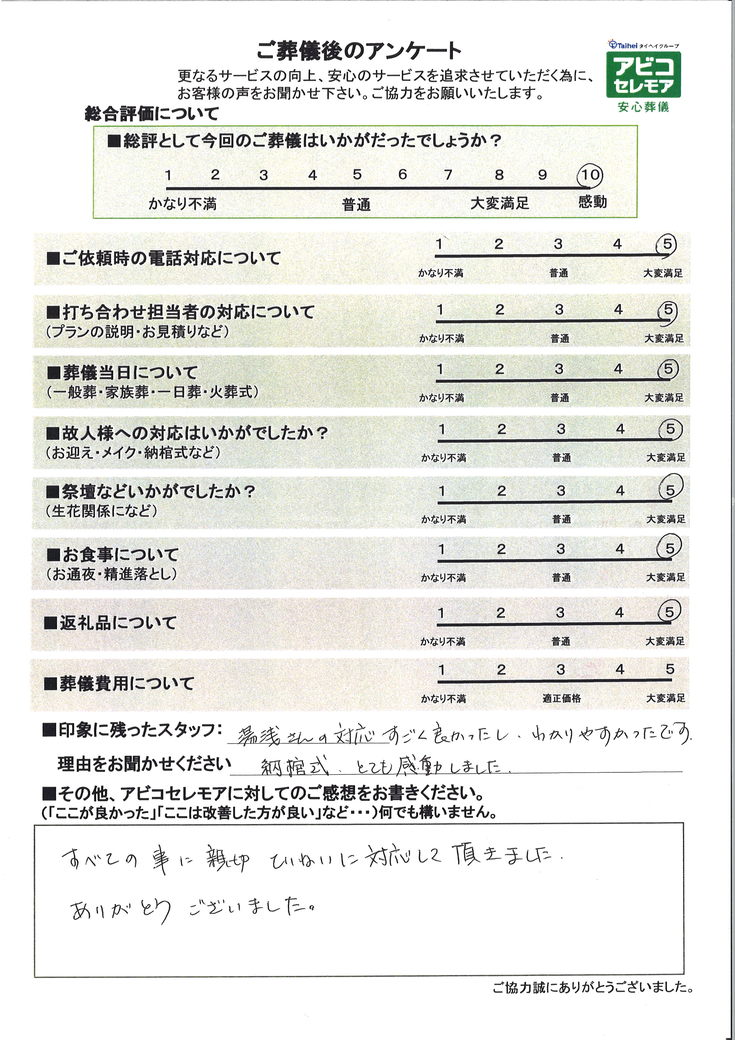 ご葬儀後のアンケート
Taihei タイヘイグループ
アビコ
セレモア
安心葬儀
更なるサービスの向上、安心のサービスを追求させていただく為に、
お客様の声をお聞かせ下さい。ご協力をお願いいたします。
総合評価について
■総評として今回のご葬儀はいかがだったでしょうか？
1 2 3 4 5 6 7 8 9 10
かなり不満 普通 大変満足 感動
■ご依頼時の電話対応について
1 2 3 4 5
かなり不満 普通 大変満足
■打ち合わせ担当者の対応について
(プランの説明・お見積りなど)
1 2 3 4 5
かなり不満 普通 大変満足
■葬儀当日について
(一般葬・家族葬・一日葬・火葬式)
1 2 3 4 5
かなり不満 普通 大変満足
■故人様への対応はいかがでしたか？
(お迎え・メイク・納棺式など)
1 2 3 4 5
かなり不満 普通 大変満足
■祭壇などいかがでしたか？
(生花関係になど)
1 2 3 4 5
かなり不満 普通 大変満足
■お食事について
(お通夜・精進落とし)
1 2 3 4 5
かなり不満 普通 大変満足
■返礼品について
1 2 3 4 5
かなり不満 普通 大変満足
■葬儀費用について
1 2 3 4 5
かなり不満 適正価格 大変満足
■印象に残ったスタッフ： 湯浅さんの対応すごく良かったし、わかりやすかったです。
理由をお聞かせください 納棺式、とても感動しました。
■その他、アビコセレモアに対してのご感想をお書きください。
(「ここが良かった」「ここは改善した方が良い」など・・・)何でも構いません。
すべての事に親切ていねいに対応して頂きました。
ありがとうございました。
ご協力誠にありがとうございました。